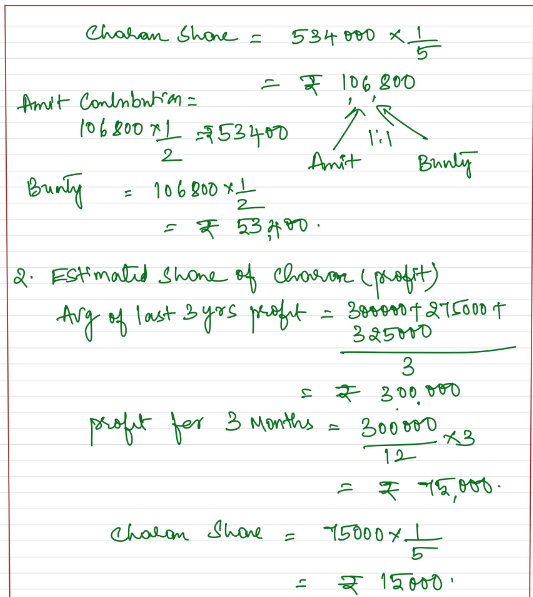 Charan Share = 534000 × 1/5
= ₹ 106,800
Amit Contribution =
106800 × 1/2 = ₹53400
1:1
Amit Bunty
Bunty = 106800 × 1/2
= ₹ 53,400.
2. Estimated Share of Charan (profit)
Avg of last 3 yrs profit = 300000 + 275000 +
325000
3
= ₹ 300,000
profit for 3 Months = 300000/12 × 3
= ₹ 75,000.
Charan Share = 75000 × 1/5
= ₹ 15000.